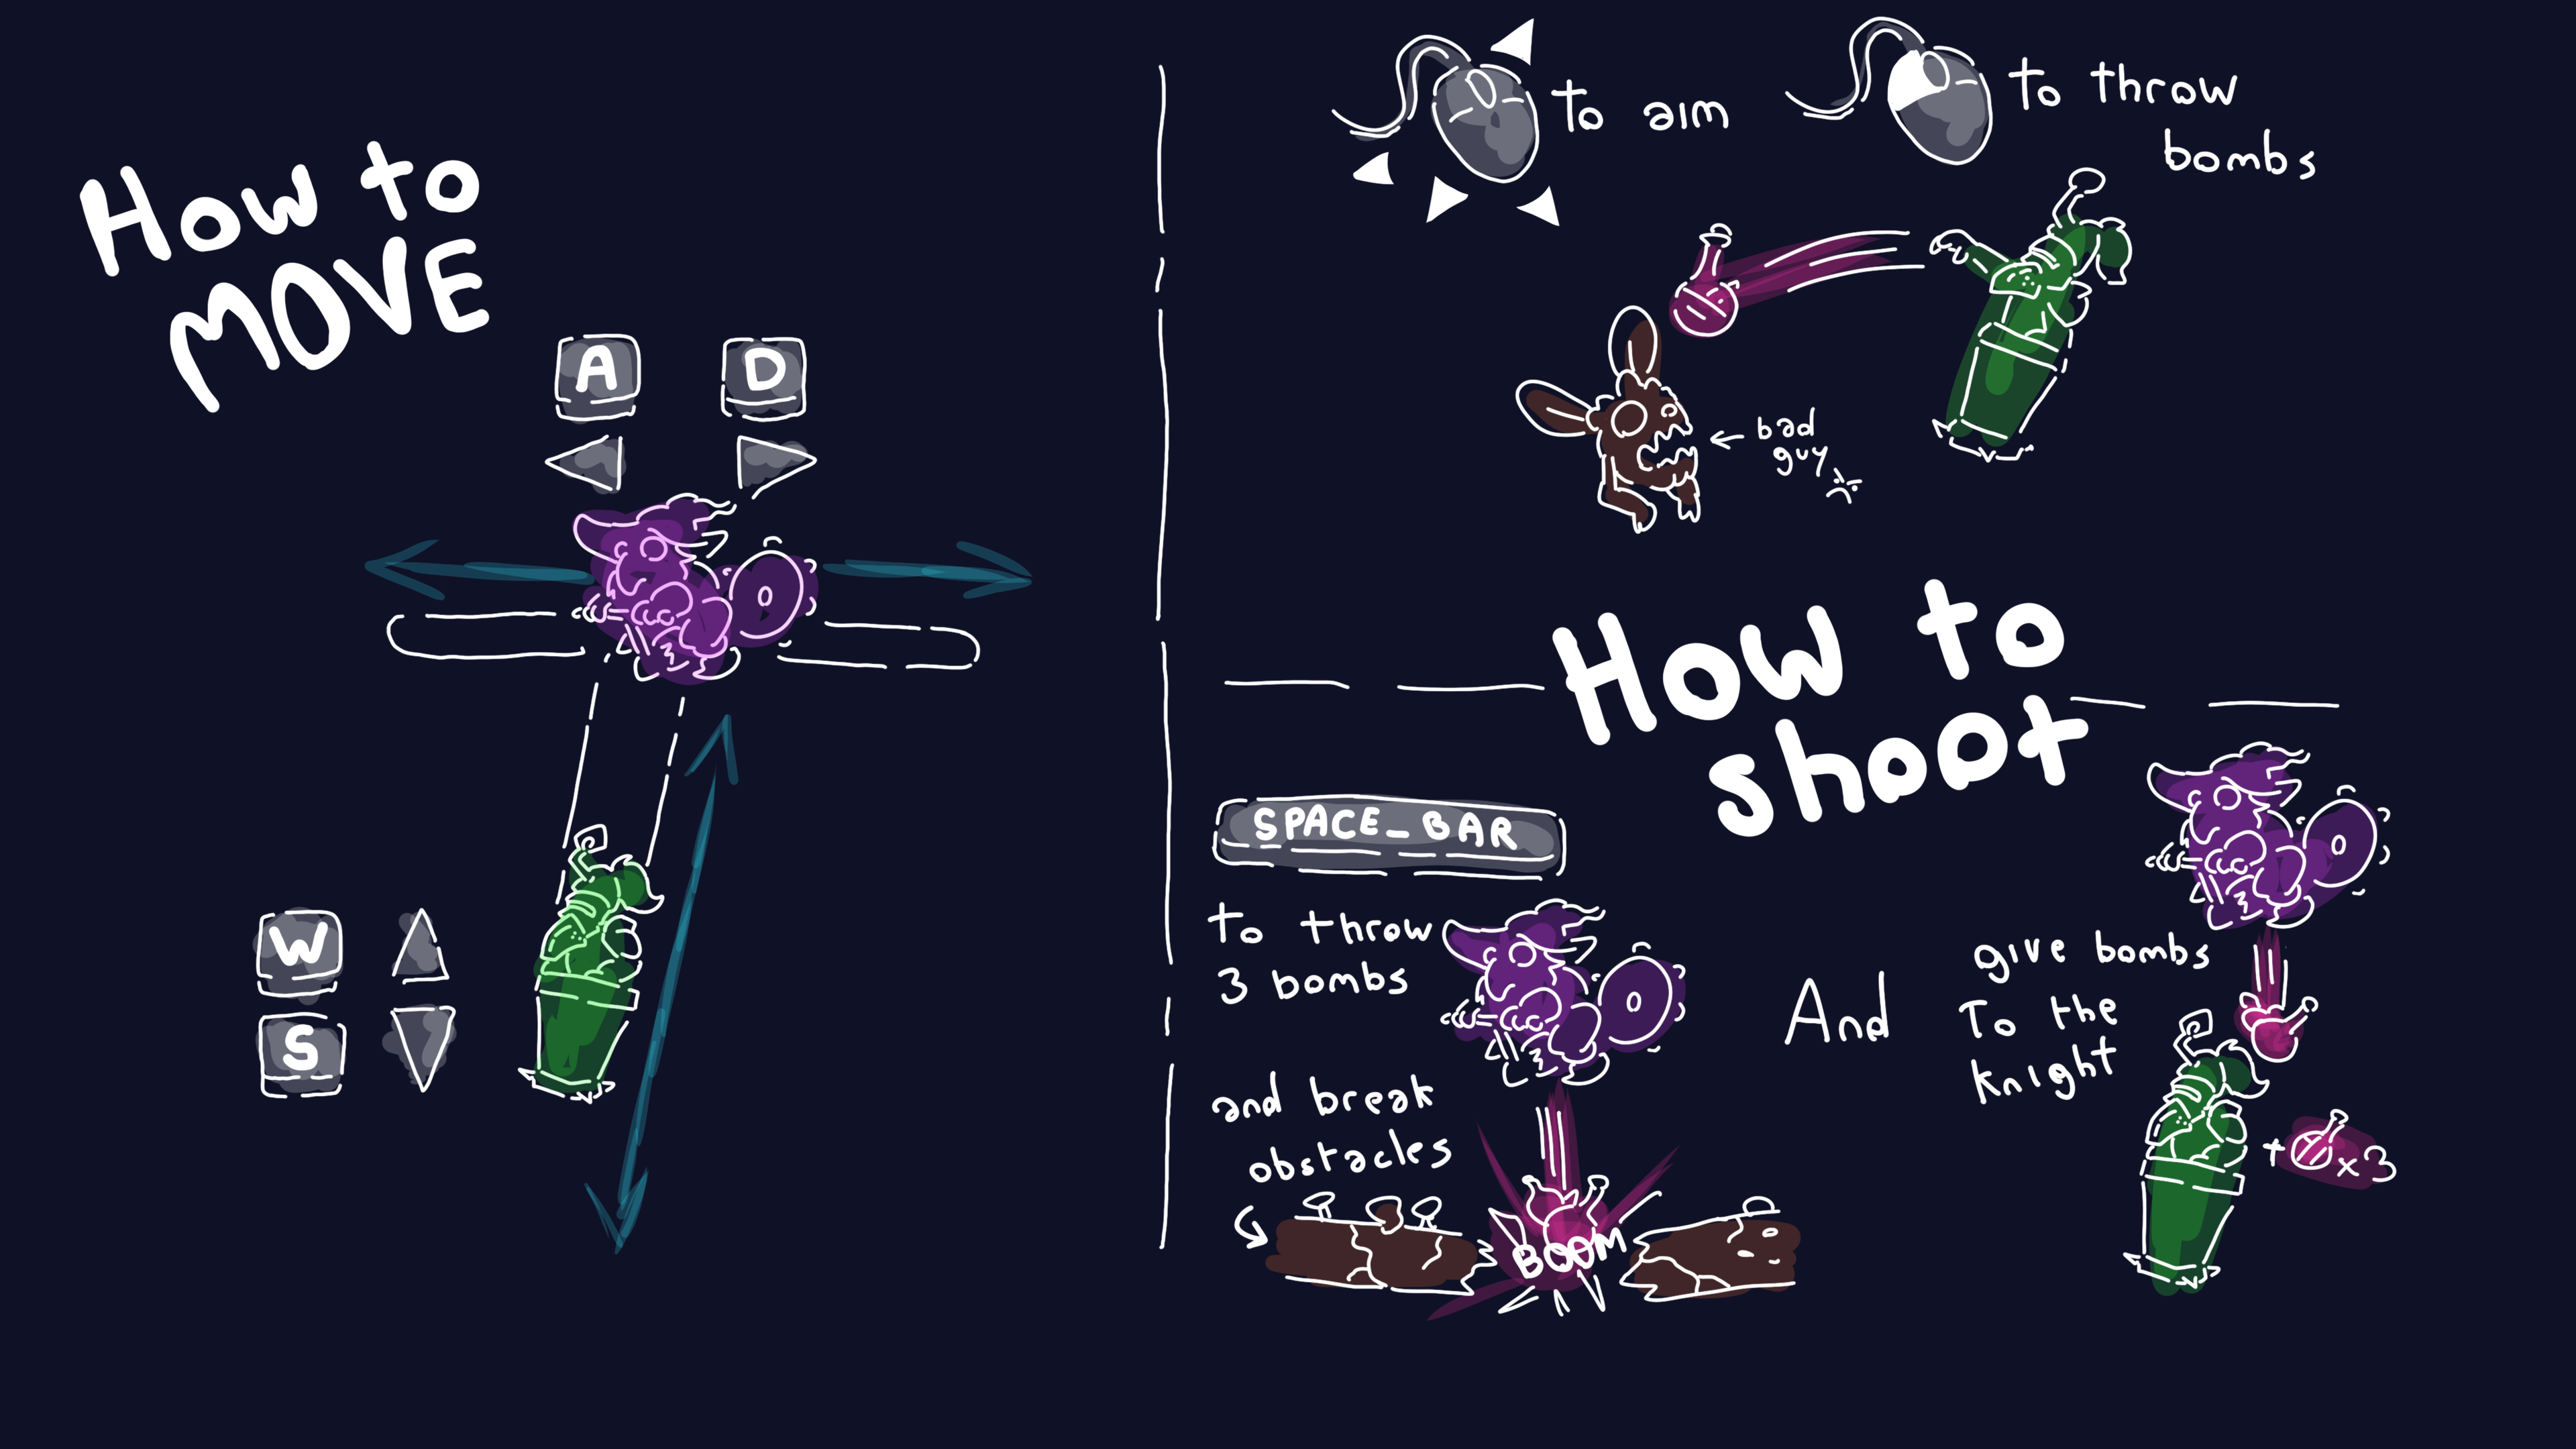 How to
MOVE
A D
W
S
to aim
to throw
bombs
← bad
guy
How to
shoot
SPACE_BAR
to throw
3 bombs
and break
obstacles
BOOM
And
give bombs
To the
knight
+ x3